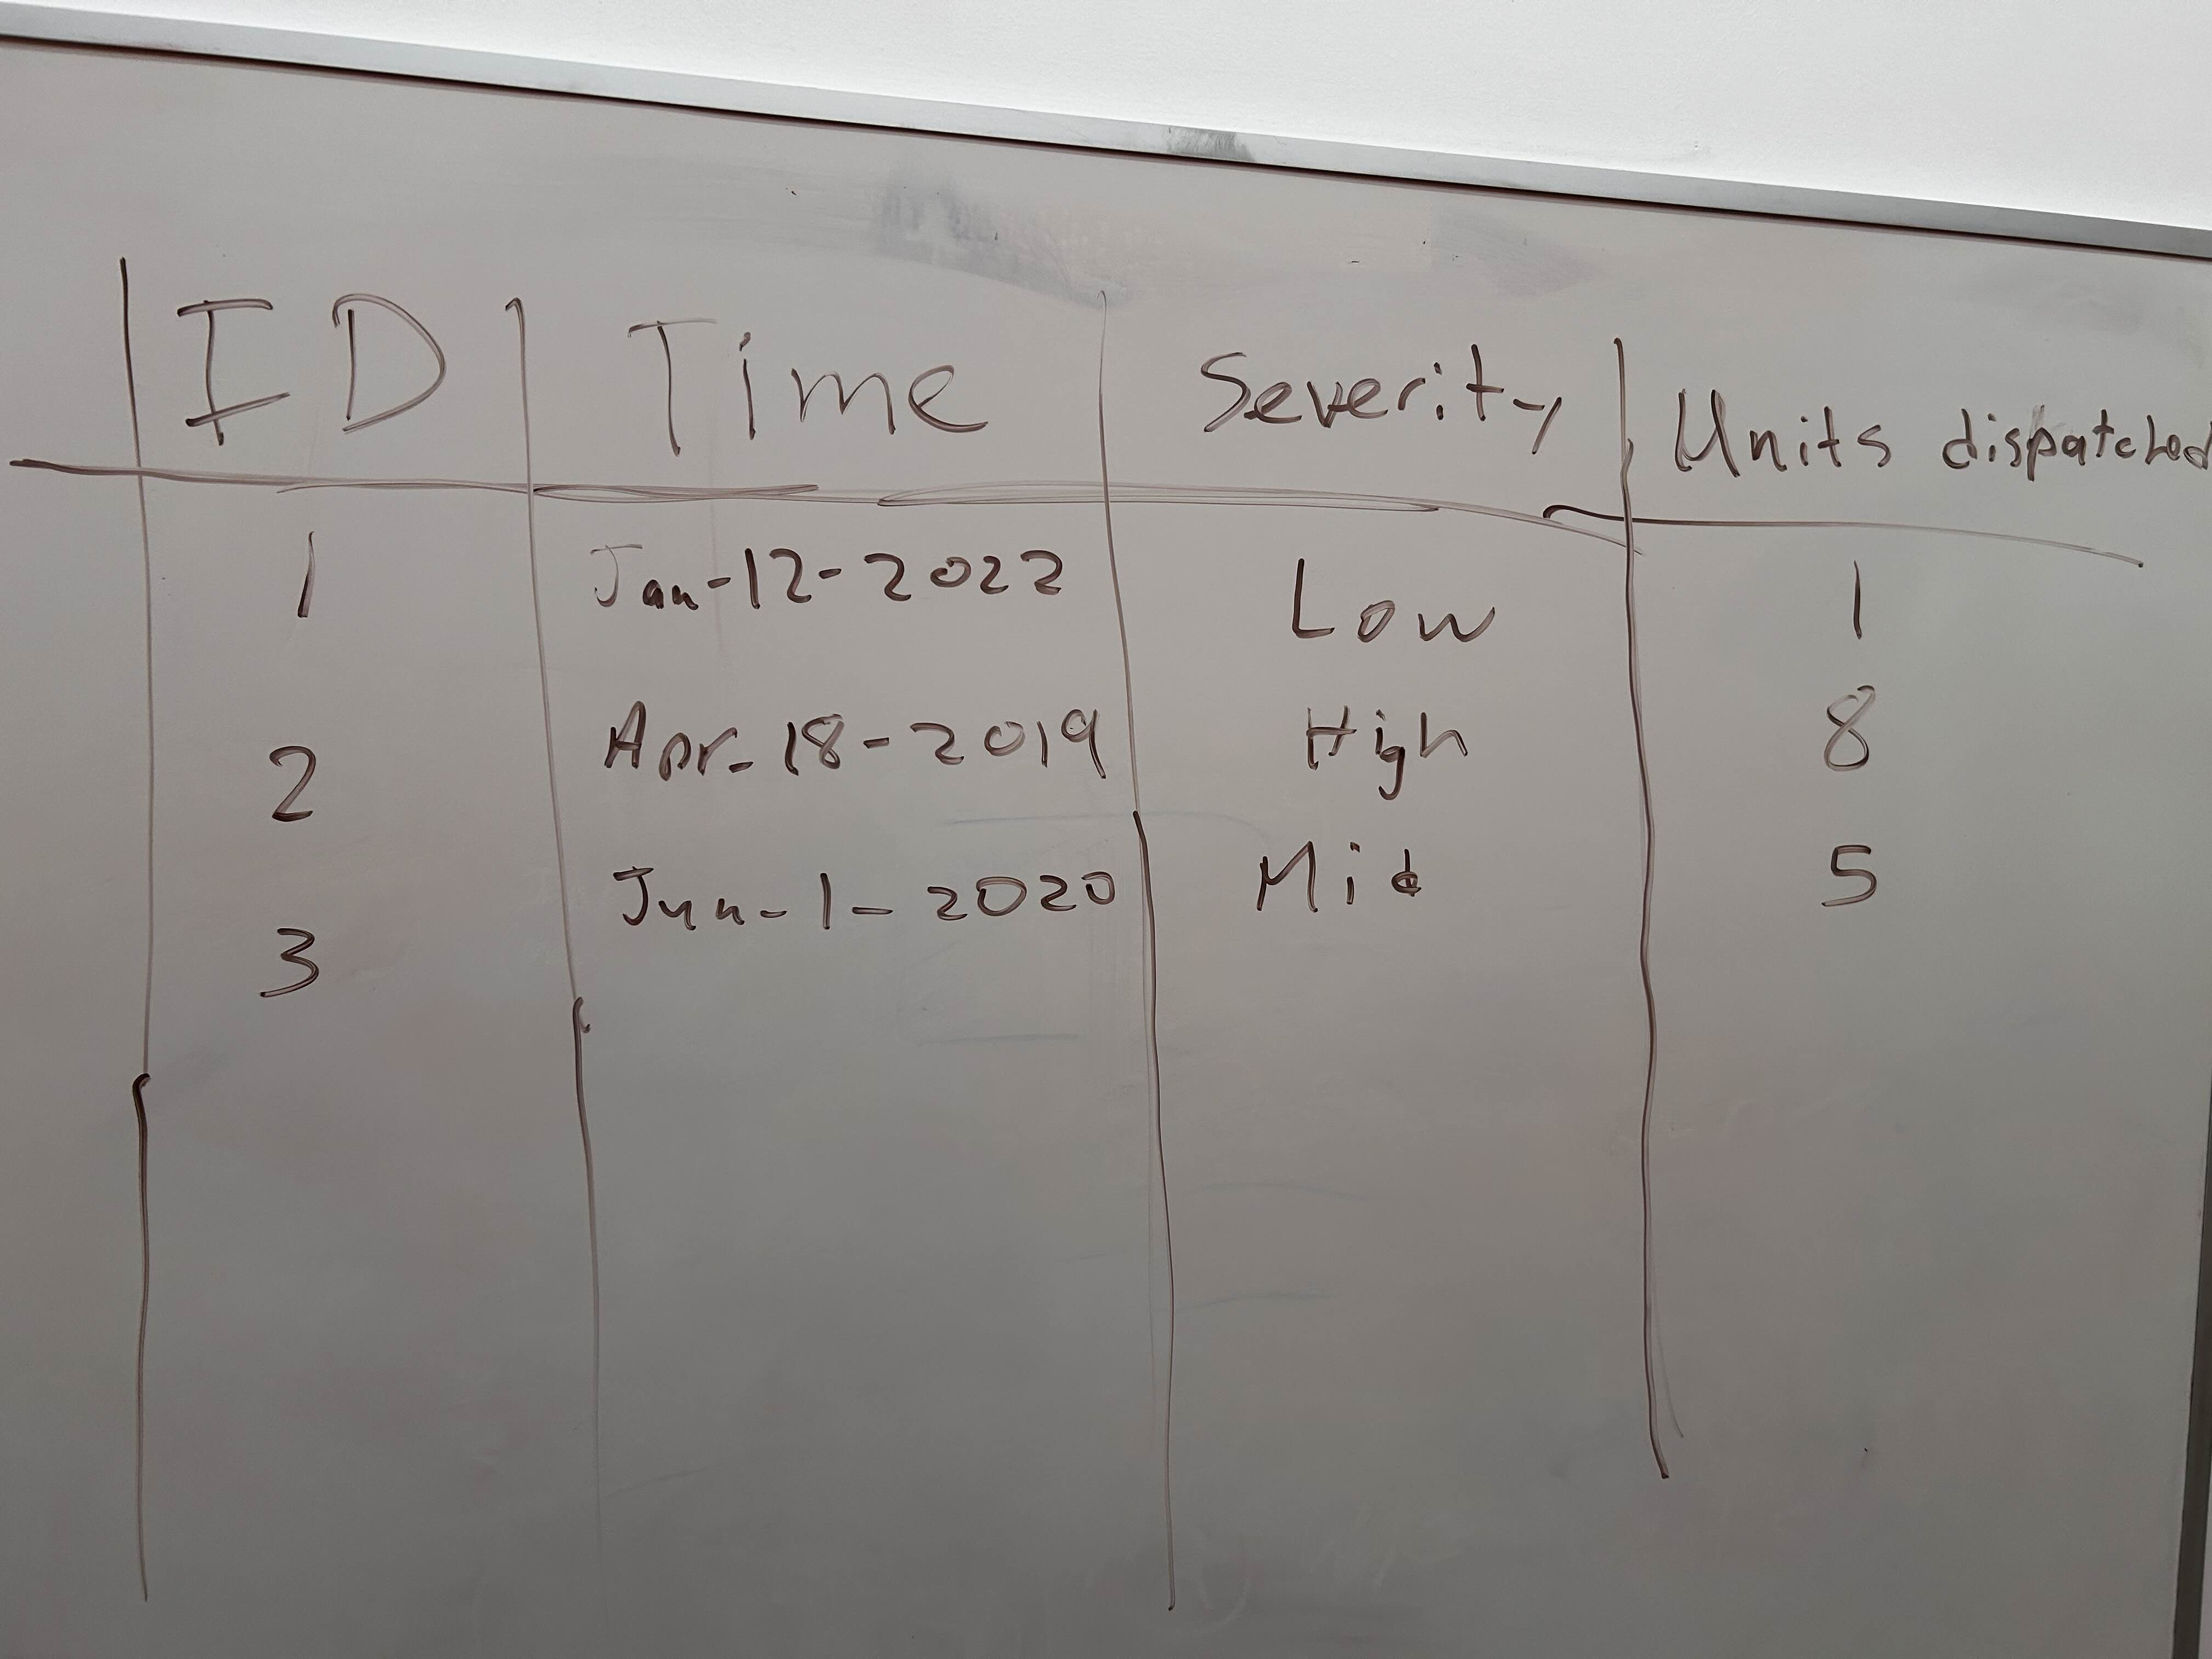 ID Time Severity Units dispatched
1 Jan-12-2022 Low 1
2 Apr-18-2019 High 8
3 Jun-1-2020 Mid 5